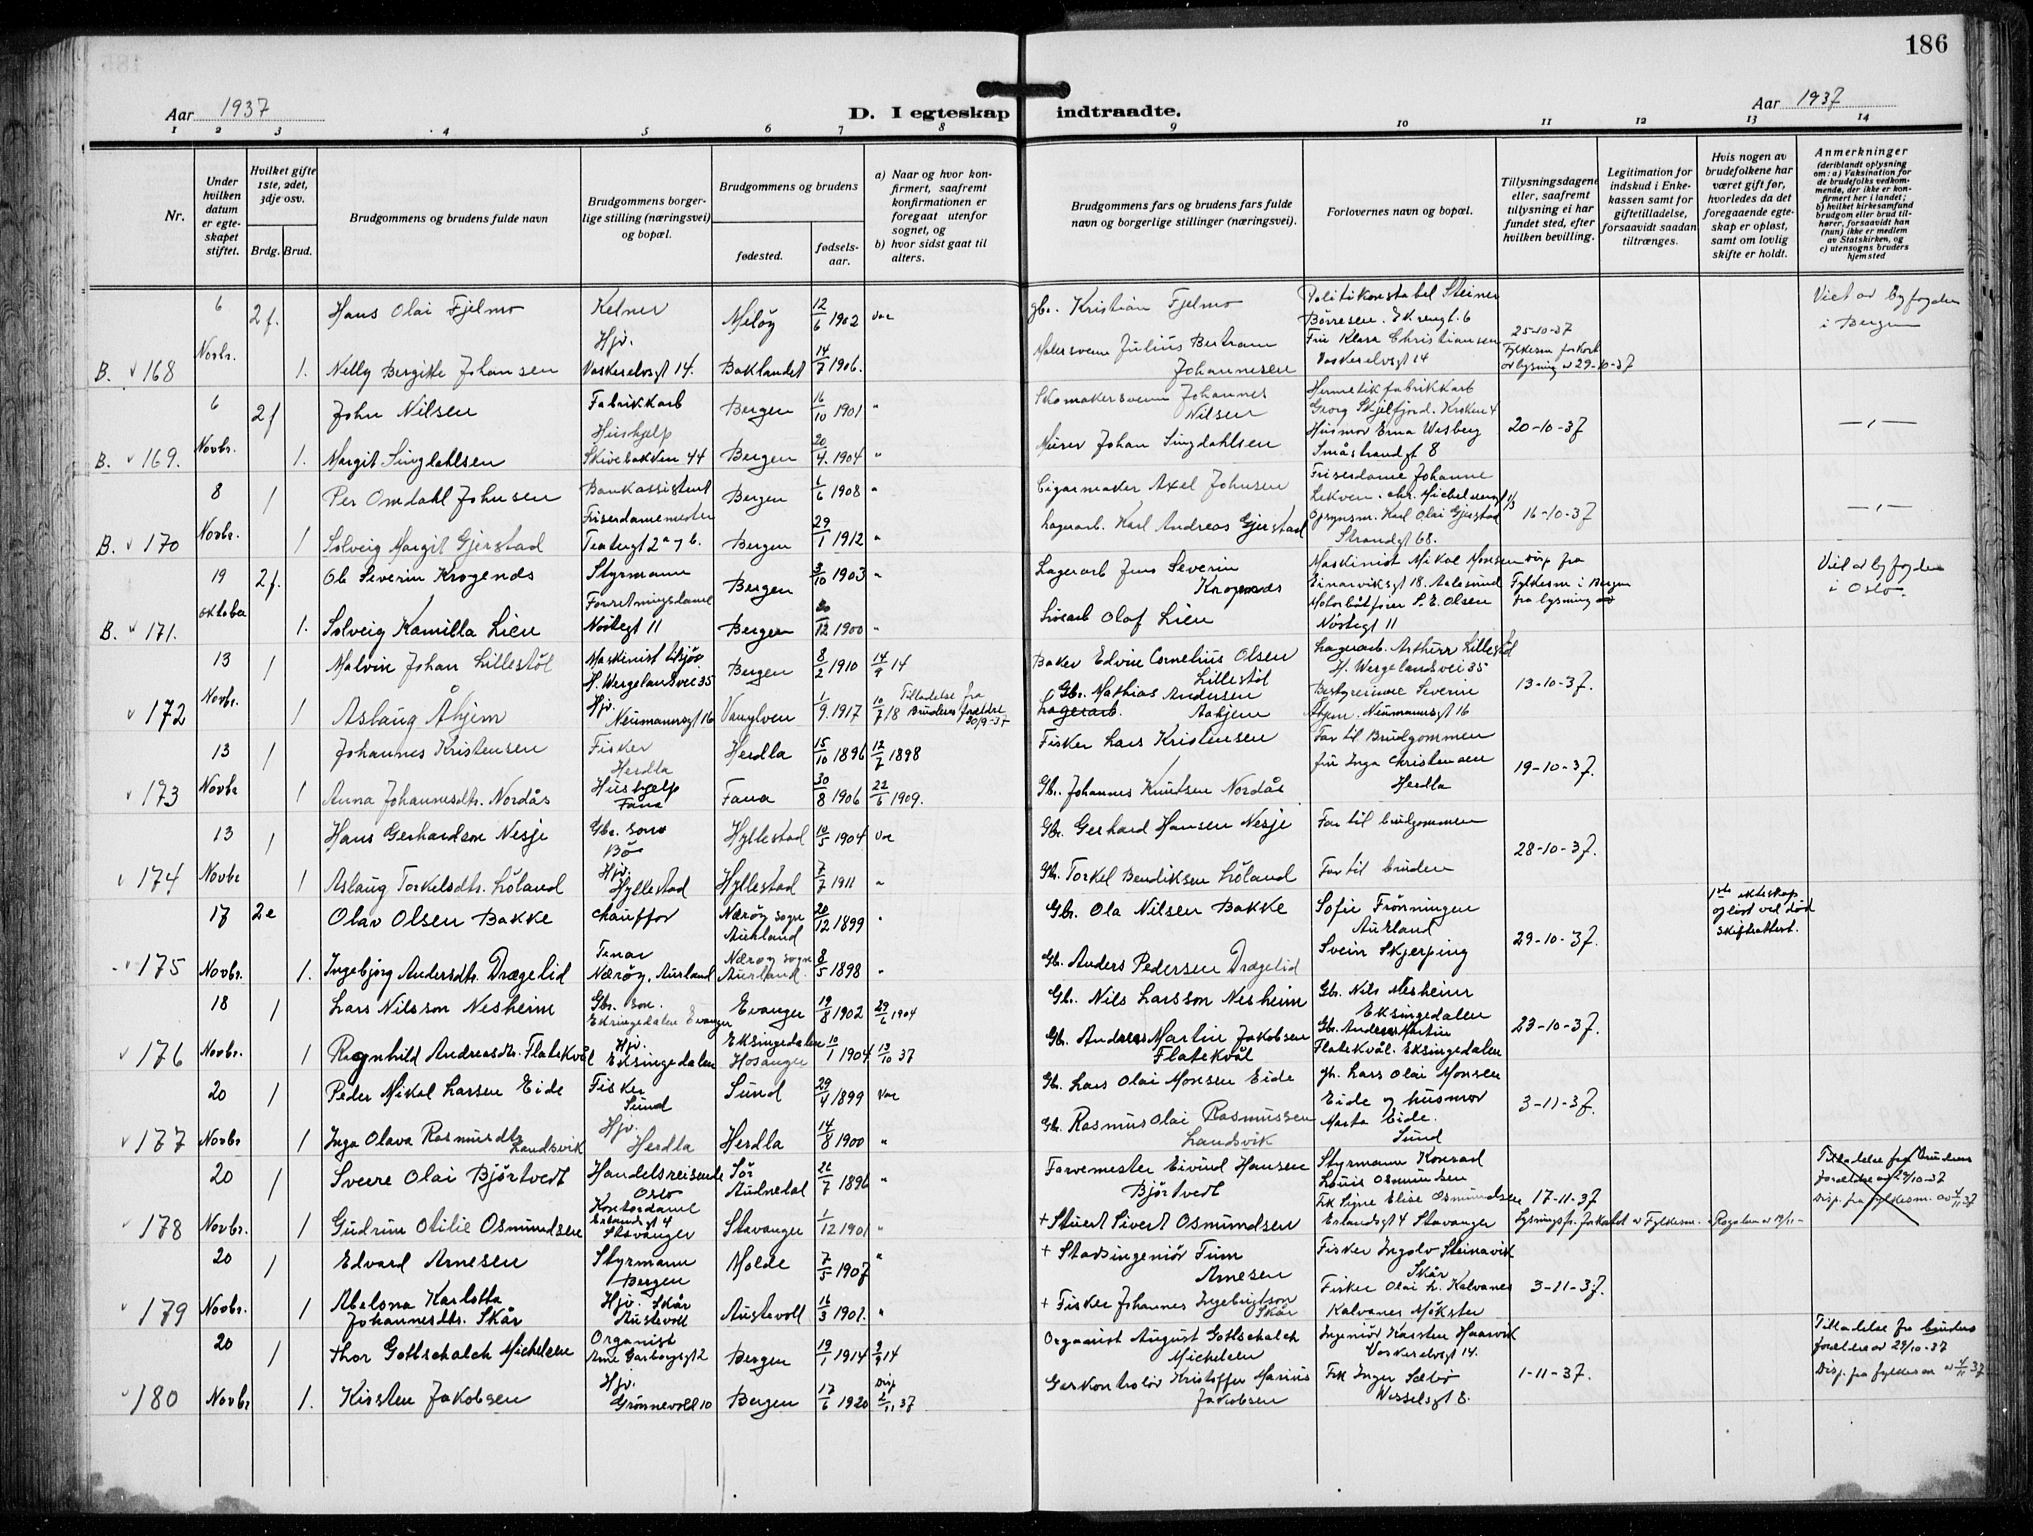 186
Aar 1937
D. I egteskap indtraadte.
Aar 1937
1 2 3 4 5 6 7 8 9 10 11 12 13 14
Nr.
Under hvilken datum er egteskapet stiftet.
Hvilket gifte 1ste, 2det, 3dje osv.
Brdg. Brud.
Brudgommens og brudens fulde navn
Brudgommens borgerlige stilling (næringsvei) og bopæl.
Brudgommens og brudens
fødested.
fødselsaar.
a) Naar og hvor konfirmert, saafremt konfirmationen er foregaat utenfor sognet, og
b) hvor sidst gaat til alters.
Brudgommens fars og brudens fars fulde navn og borgerlige stillinger (næringsvei).
Forlovernes navn og bopæl.
Tillysningsdagene eller, saafremt tillysning ei har fundet sted, efter hvilken bevilling.
Legitimation for indskud i Enkekassen samt for giftetilladelse, forsaavidt saadan tiltrænges.
Hvis nogen av brudefolkene har været gift før, hvorledes da det foregaaende egteskap er opløst, samt om lovlig skifte er holdt.
Anmerkninger (deriblandt oplysning om: a) Vaksination for de brudefolks vedkommende, der ikke er konfirmert her i landet; b) hvilket kirkesamfund brudgom eller brud tilhører, forsaavidt han (hun) ikke er medlem av Statskirken, og c) utensogns bruders hjemsted
6 2f. Hans Olai Fjelmo Kelner Meløy 12/6 1902 Vor gbr. Kristian Fjelmo Politikonstabel Steiner Børresen. Viet av byfogden i Bergen
B. 168 Novbr. 1. Nelly Bergitte Johansen Hjv. Vaskerelvsgt 14. Baklandet 14/7 1906. Malersvenn Julius Bertram Johannesen Fru Klara Christiansen Vaskerelvsgt 14 25-10-37
6 2f John Nilsen Fabrikkarb Bergen 16/10 1901 " Skomakersvenn Johannes Nilsen Hermetikfabrikkarb Georg Skjelfjord. Kroken 4 20-10-37
B. 169. Novbr. 1. Margit Singdahlsen Hushjelp Skivebakken 44 Bergen 20/4 1904 " Murer Johan Singdahlsen Husmor Erna Wesberg Småstrandgt 8
8 1 Per Omdahl Johnsen Bankassistent Bergen 1/6 1908 " Cigarmaker Axel Johnsen Friserdame Johanne 16-10-37
B. 170 Novbr. 1 Solveig Margit Gjerstad Friserdamemester Teatergt 2a 7b. Bergen 29/1 1912 " Lagerarb. Karl Andreas Gjerstad Opsynsm. Karl Olai Gjerstad Strandgt 68.
19 2f. Ole Severin Krogends Styrmann Bergen 3/10 1903 " Lagerarb Jens Severin Krogends Maskinist Mikal Monsen Einarviksgt 18. Aalesund Disp fra Fylkesm i Bergen fra lysning Viet av byfogden i Oslo.
B. 171. oktober 1. Solveig Kamilla Lien Forretningsdame Nøstegt 11 Bergen 20/12 1900 " Olaf Lien Motorbåtfører S. E. Olsen Nøstegt 11
13 1 Malvin Johan Lillestøl Maskinist tilsjøs H. Wergelandsvei 35 Bergen 8/2 1910 14/9 14 Baker Edvin Cornelius Olsen Lillestøl Lagerarb. Arthur Lillestøl H. Wergelandsvei 35 13-10-37.
172 Novbr. 1 Aslaug Åhjem Hjv. Neumannsgt 16 Vanylven 1/9. 1917 10/7 18 Tilladelse fra Brudens foreldre 20/9-37 Gbr. Mathias Andersen Aahjem Bestyrerinne Severin Åhjem. Neumannsgt 16
13 1 Johannes Kristensen Fisker Herdla Herdla 15/10 1896 12/7 1898 Fisker Lars Kristensen Far til Brudgommen 19-10-37.
173 Novbr 1 Anna Johannesdtr. Nordås Hushjelp Fana Fana 30/8 1906 22/6 1909. Gbr. Johannes Knutsen Nordås fru Inga Christensen Herdla
13 1 Hans Gerhardson Nesje Gbr. sønn Bø Hyllestad 10/5 1904 Vor Gbr. Gerhard Hansen Nesje Far til brudgommen 28-10-37.
174 Novbr 1 Aslaug Torkelsdtr. Løland Hjv. Hyllestad Hyllestad 7/7 1911 " Gb. Torkel Bendiksen Løland Far til bruden
17 2e Olav Olsen Bakke chauffør Nærøy sogn Aurland 20/12 1899 " Gbr. Ola Nilsen Bakke Sofie Frønningen Aurland 29-10-37. 1ste ekteskap opløst ved død skifteattest.
175 Novbr. 1. Ingebjørg Andersdtr. Drægelid Nærøy. Aurland Nærøy sogn Aurland. 8/5 1898 " Gb. Anders Pedersen Drægelid Svein Skjerping
18 1 Lars Nilsson Nesheim Gbr. søn. Eksingedalen Evanger Evanger 19/8 1902 29/6 1904 Gb. Nils Larsson Nesheim Gb. Nils Nesheim Eksingedalen 23-10-37.
176 Novbr. 1 Ragnhild Andreasdtr. Flatekvål Hjv. Eksingedalen Eksingedalen Hosanger 10/1 1904 13/10 37 Gb. Andreas Martin Jakobsen Flatekvål Gb. Andreas Martin Flatekvål. Eksingedalen
20 1 Peder Mikal Larsen Eide Fisker Sund Sund 29/4 1899 Vor Gb. Lars Olai Monsen Eide gb. Lars Olai Monsen 3-11-37.
177 Novbr 1 Inga Olava Rasmusdtr. Landsvik Hjv. Herdla Herdla 14/8 1900 " Gb. Rasmus Olai Rasmussen Landsvik Eide og husmor Marta Eide. Sund
20 1 Sverre Olai Bjørtvedt Handelsreisende Oslo Sør Audnedal 26/7 1896 " Farvemester Eivind Hansen Bjørtvedt Styrmann Konrad Louis Osmundsen 17-11-37 Tilladelse fra brudens foreldre av 29/10-37 Disp. fra fylkesm. av 4/11 37
178 Novbr. 1 Gudrun Otilie Osmundsen Kontordame Erlandsgt 4 Stavanger Stavanger 1/12 1901 " + Stuert Sivert Osmundsen Frk Signe Elise Osmundsen Erlandsgt 4 Stavanger Lysningsfr. forkortet av Fylkesm. i Rogaland
20 1 Edvard Arnesen Styrmann Bergen Molde 7/5 1907 " + Stadsingeniør Arnesen Fisker Ingolv Steinsvik Skår 3-11-37.
179 Novbr. 1 Abelona Karlotta Johannesdtr. Skår Hjv. Skår Austevoll Austevoll 16/3 1901. " + Fisker Johannes Ingebrigtson Skår Fisker Olai L. Kalvanes Kalvanes Møkster
20 1 Thor Gottschalch Michelsen Organist Arne Garborgsgt 2 Bergen 19/1 1914 Organist August Gottschalch Michelsen Ingeniør Karsten Haarvik Vaskerelvsgt 14. 1-11-37. Tilladelse fra brudens foreldre av 29/10-37 Disp. fra fylkesm av 4/11 37
180 Novbr 1. Kirsten Jakobsen Hjv. Grønnevoll 10 Bergen 17/6 1920 Disp 2/11 37 Gaskontrolør Kristoffer Marius Jakobsen Frk Inger Sælør Wesselsgt 8.